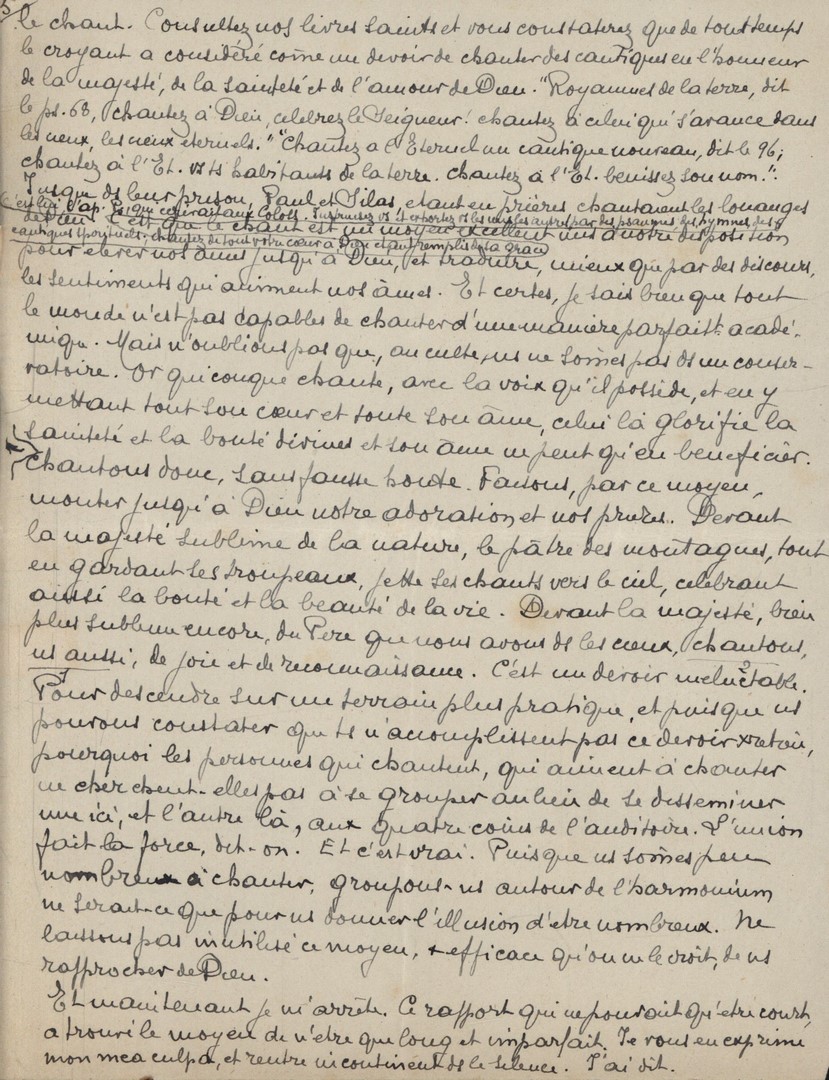 5
le chant. Consultez nos livres saints et vous constaterez que de tout temps
le croyant a considéré come un devoir de chanter des cantiques en l'honneur
de la majesté, de la sainteté et de l'amour de Dieu. "Royaumes de la terre, dit
le ps. 68, chantez à Dieu, celebrez le Seigneur! chantez à celui qui s'avance dans
les cieux, les cieux eternels." "Chantez a l'Eternel un cantique nouveau, dit le 96;
chantez à l'Et. vs ts habitants de la terre. Chantez à l'Et. benissez son nom.".
Jusque ds leur prison, Paul et Silas, etant en prières chantaient les louanges
C'est lui l'ap. Paul qui ecrivait aux Coloss. Instruisez vs et exhortez vs les uns les autres par des psaumes des hymnes, des
de Dieu. C'est que le chant est un moyen excellent mis à notre disposition
cantiques spirituels, chantez de tout votre cœur à Dieu etant remplis de la Grace
pour elever nos âmes jusqu'à Dieu, et traduire, mieux que par des discours,
les sentiments qui animent nos âmes. Et certes, je sais bien que tout
le monde n'est pas capables de chanter d'une manière parfaitt acadé-
mique. Mais n'oublions pas que, au culte, ns ne somes pas ds un conser-
vatoire. Or quiconque chante, avec la voix qu'il possède, et en y
mettant tout son cœur et toute son âme, celui là glorifie la
sainteté et la bonté divines et son âme ne peut qu'en beneficier.
Chantons donc, sans fausse honte. Faisons, par ce moyen,
monter jusqu'à Dieu notre adoration et nos prières. Devant
la majesté sublime de la nature, le pâtre des montagnes, tout
en gardant ses troupeaux, jette ses chants vers le ciel, celebrant
ainsi la bonté et la beauté de la vie. Devant la majesté, bien
plus sublime encore, du Pere que nous avons ds les cieux, chantons,
ns aussi, de joie et de reconnaissance. C'est un devoir ineluctable.
Pour descendre sur un terrain plus pratique, et puisque ns
pouvons constater que ts n'accomplissent pas ce devoir xretien,
pourquoi les personnes qui chantent, qui aiment à chanter
ne cherchent-elles pas à se grouper au lieu de se desseminer
une ici, et l'autre là, aux quatre coins de l'auditoire. L'union
fait la force, dit-on. Et c'est vrai. Puisque ns somes peu
nombreux à chanter, groupons-ns autour de l'harmonium
ne serait-ce que pour ns donner l'illusion d'etre nombreux. Ne
laissons pas inutilisé ce moyen, + efficace qu'on ne le croit, de ns
rapprocher de Dieu.
Et maintenant je m'arrête. Ce rapport qui ne pouvait qu'etre court,
a trouvé le moyen de n'etre que long et imparfait. Je vous en exprime
mon mea culpa, et rentre incontinent ds le silence. J'ai dit.